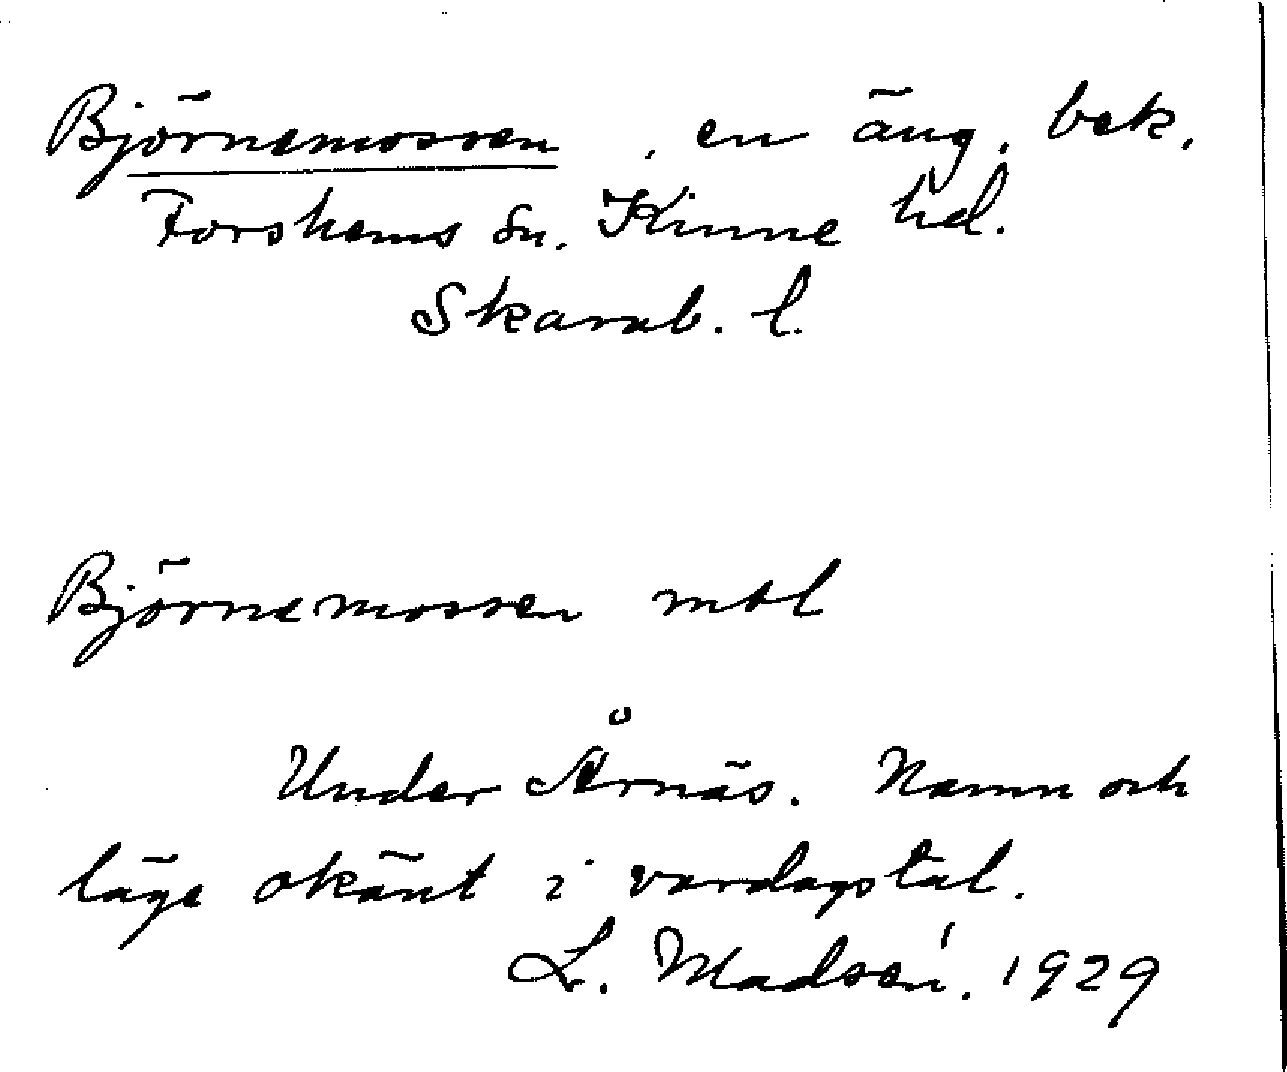 Björnemossen, en äng, bek.
Forshems sn. Kinne hd.
Skarab. l.
Björnemossen mtl
Under Årnäs. Namn och
läge okänt i vardagstal.
L. Madsén. 1929